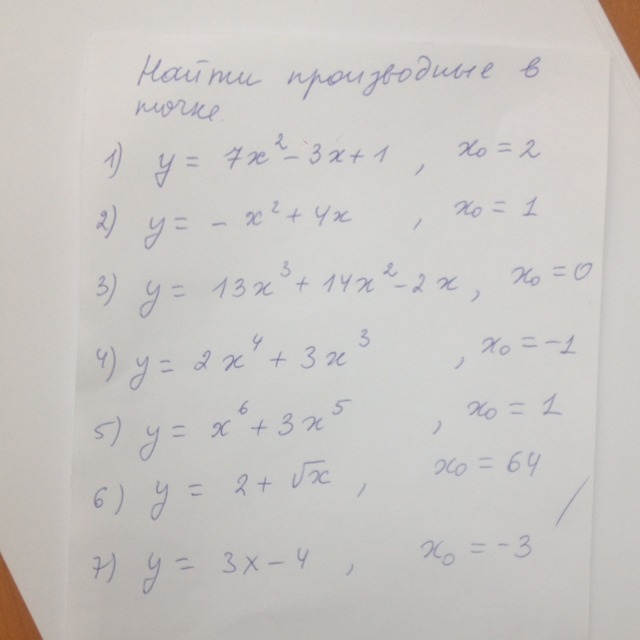 Найти производные в
точке.
1) y = 7x² - 3x + 1 , x₀ = 2
2) y = - x² + 4x , x₀ = 1
3) y = 13x³ + 14x² - 2x , x₀ = 0
4) y = 2x⁴ + 3x³ , x₀ = -1
5) y = x⁶ + 3x⁵ , x₀ = 1
6) y = 2 + √x , x₀ = 64
7) y = 3x - 4 , x₀ = -3